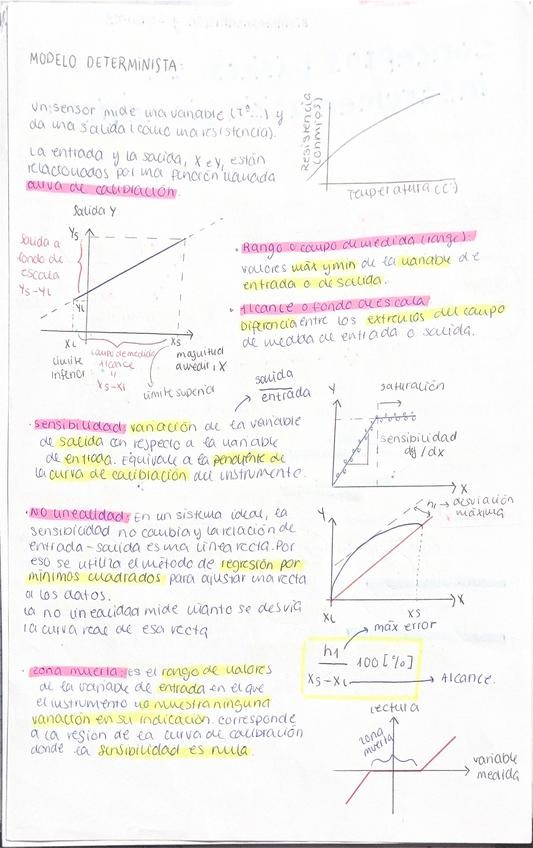 MODELO DETERMINISTA:
un sensor mide una variable (Tª...) y
da una salida (como una resistencia).
La entrada y la salida, X e Y, están
relacionados por una función llamada
curva de calibración.
Resistencia
(ohmios)
Temperatura (Cº)
Salida Y
Ys
salida a
fondo de
escala
Ys-YL
YL
XL
campo de medida
Alcance
Xs-XL
Xs
límite
inferior
magnitud
a medir, X
límite superior
· Rango o campo de medida (range):
valores máx y min de la variable de
entrada o de salida.
· Alcance o fondo de escala
Diferencia entre los extremos del campo
de medida de entrada o salida.
salida
entrada
· sensibilidad: variación de la variable
de salida con respecto a la variable
de entrada. Equivale a la pendiente de
la curva de calibración del instrumento.
Y
saturación
sensibilidad
dy/dx
X
· NO linealidad: En un sistema ideal, la
sensibilidad no cambia y la relación de
entrada-salida es una línea recta. Por
eso se utiliza el método de regresión por
mínimos cuadrados para ajustar una recta
a los datos.
la no linealidad mide cuanto se desvía
la curva real de esa recta
Y
h1 → desviación
máxima
XL
Xs
X
máx error
h1
100 [%]
Xs-XL
Alcance.
· zona muerta: Es el rango de valores
de la variable de entrada en el que
el instrumento no muestra ninguna
variación en su indicación. corresponde
a la región de la curva de calibración
donde la sensibilidad es nula.
Lectura
zona
muerta
variable
medida